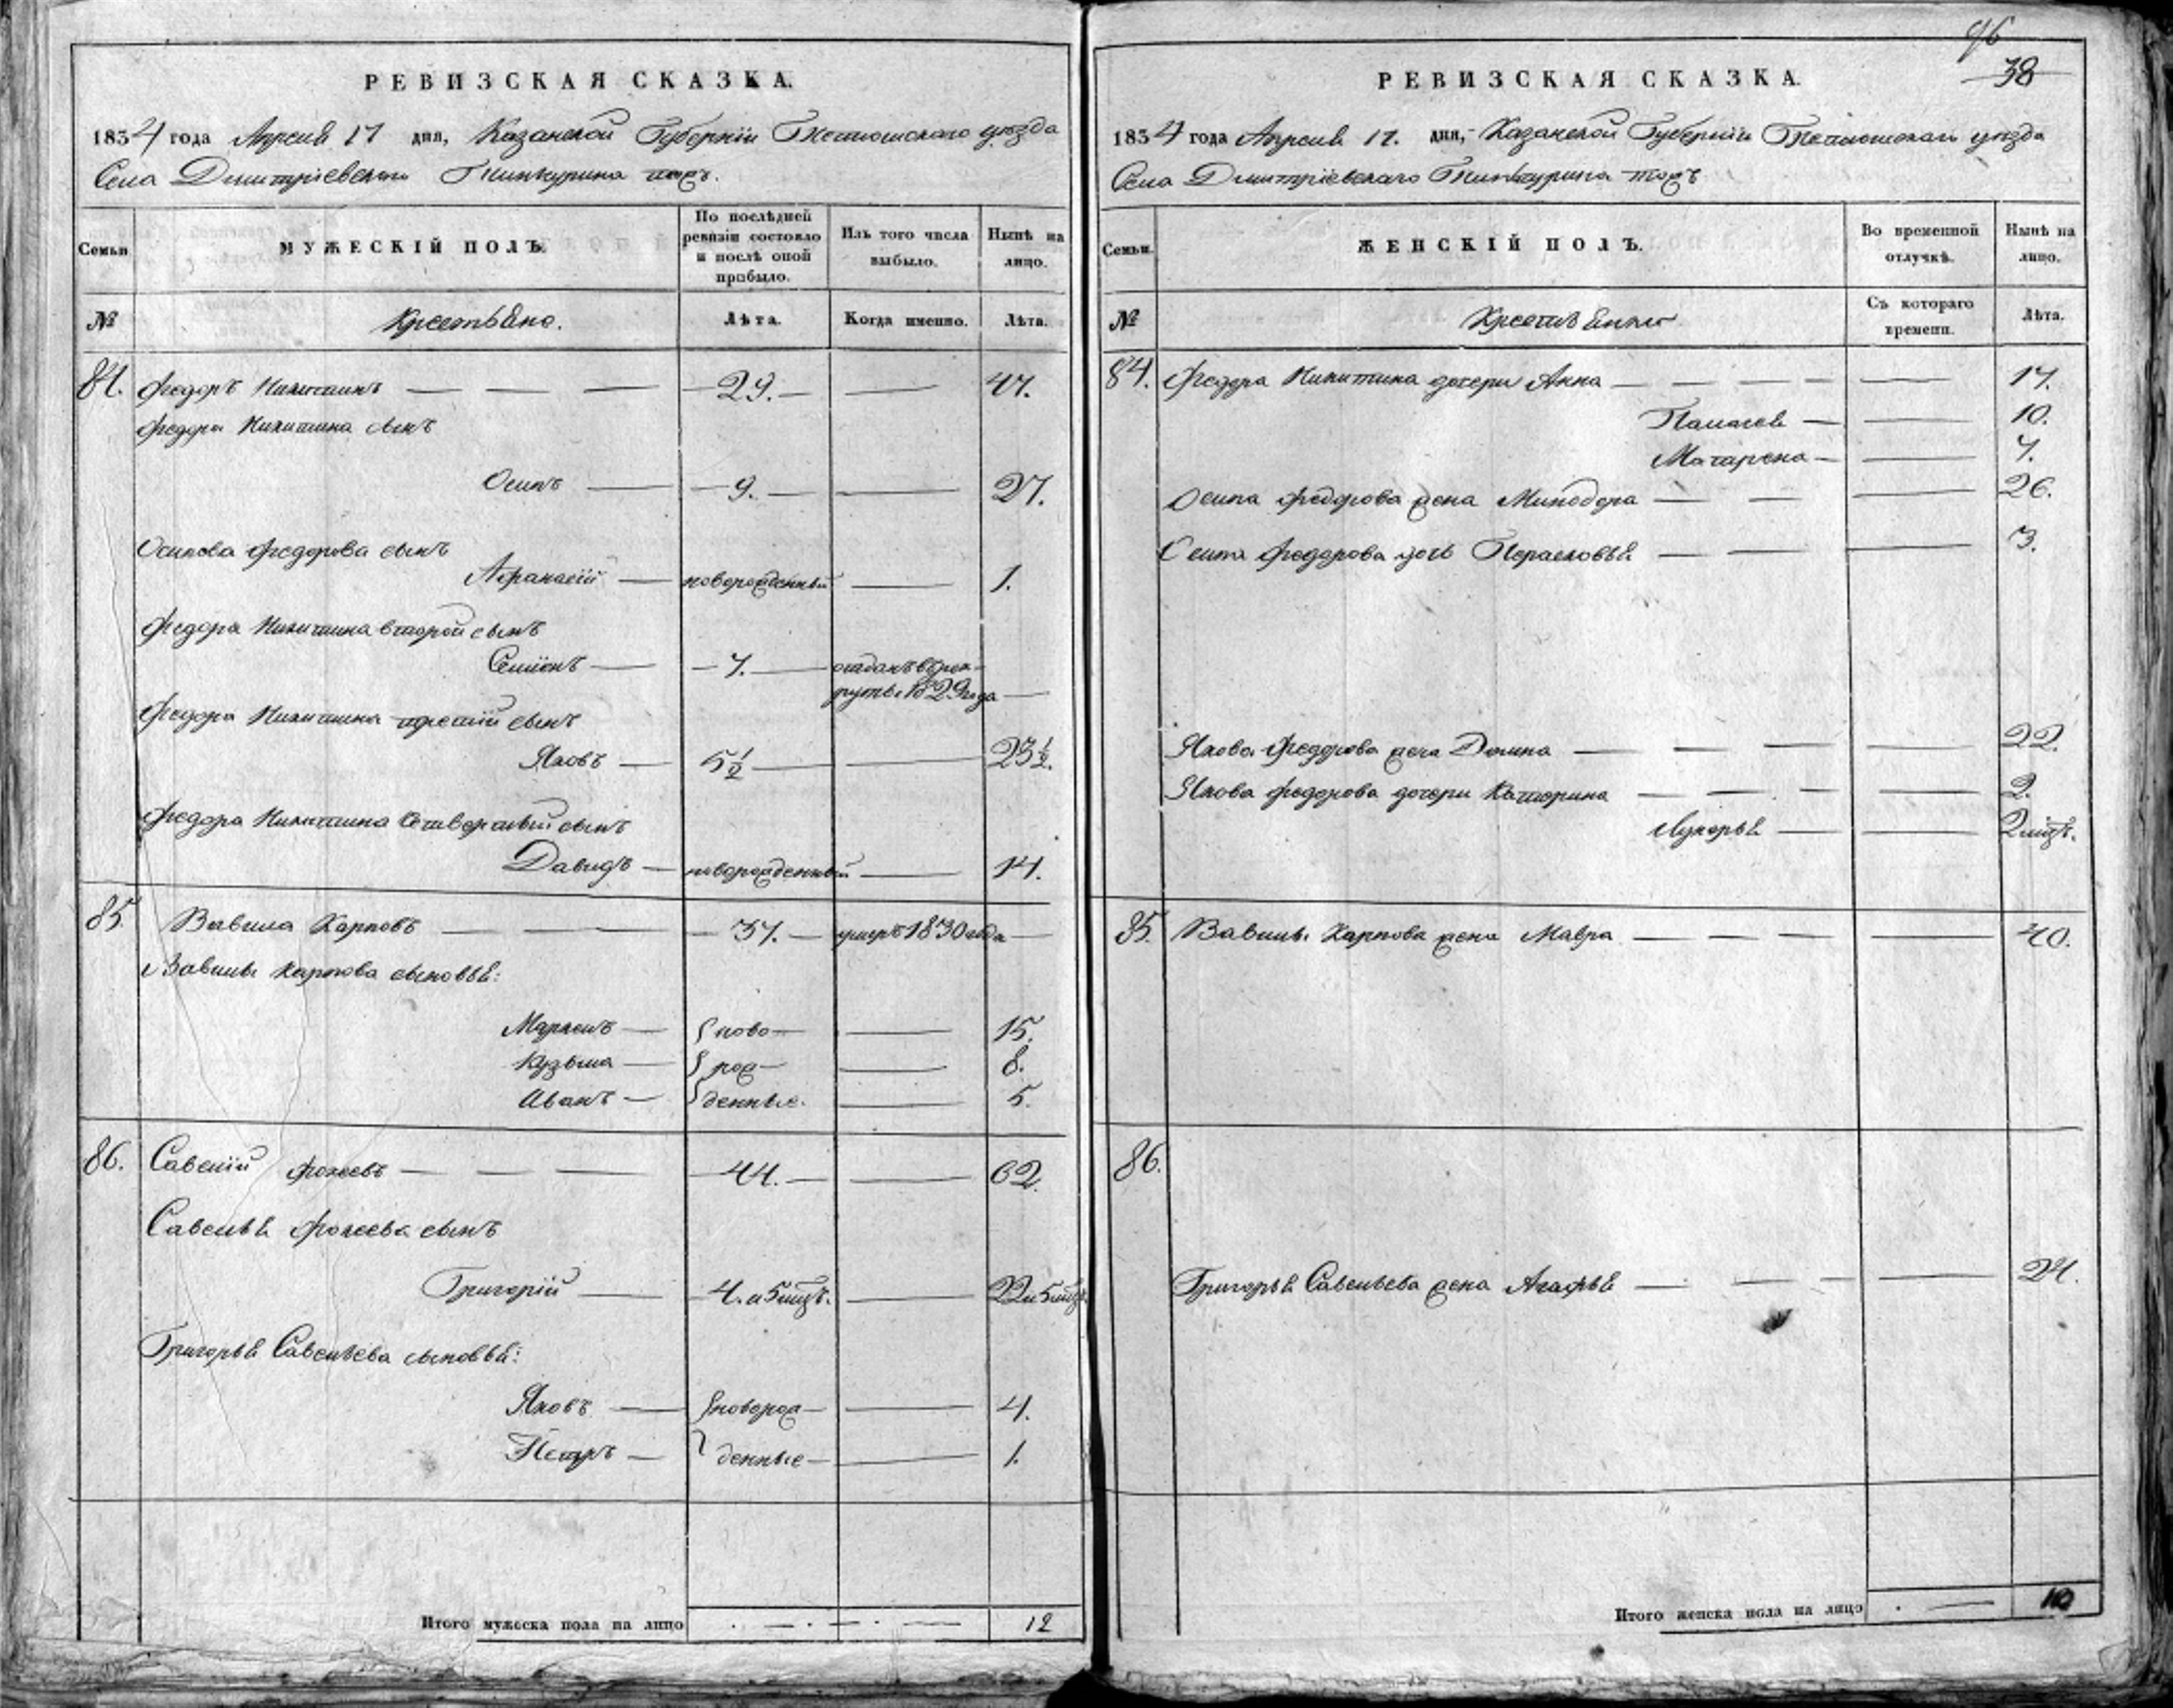 РЕВИЗСКАЯ СКАЗКА.
1834 года Апреля 17 дня, Казанской Губернiи Тетюшскаго уѣзда
Села Дмитрiевскаго Тинчурина тожъ.
Семьи
МУЖЕСКIЙ ПОЛЪ.
По послѣдней ревизiи состояло и послѣ оной прибыло.
Изъ того числа выбыло.
Нынѣ на лицо.
№
Крестьяне.
Лѣта.
Когда именно.
Лѣта.
84. Федоръ Никитинъ — — — 29. — — 47.
Федора Никитина сынъ
Осипъ — 9. — — 27.
Осипова Федорова сынъ
Афанасiй — новорожденный — 1.
Федора Никитина второй сынъ
Семiонъ — 7. — отданъ въ рек-
руты 1829 года —
Федора Никитина третiй сынъ
Яковъ — 5½ — — 23½.
Федора Никитина четвертый сынъ
Давидъ — новорожденный — 14.
85. Вавила Карповъ — — — 37. — умеръ 1830 года —
Вавилы Карпова сыновья:
Маркелъ — ново — — 15.
Кузьма — рож — — 8.
Иванъ — денные. — 5.
86. Савелiй Фокеевъ — — — 44. — — 62.
Савелья Фокеева сынъ
Григорiй — 4. и 5 мцъ. — 22 и 5 мцъ.
Григорья Савельева сыновья:
Яковъ — новорож — — 4.
Петръ — денные — — 1.
Итого мужеска пола на лицо 12
96
38
РЕВИЗСКАЯ СКАЗКА.
1834 года Апреля 17. дня, Казанской Губернiи Тетюшскаго уѣзда
Села Дмитрiевскаго Тинчурина тожъ
Семьи.
ЖЕНСКIЙ ПОЛЪ.
Во временной отлучкѣ.
Нынѣ на лицо.
№
Крестьянки
Съ котораго времени.
Лѣта.
84. Федора Никитина дочери Анна — — — — — 17.
Палагея — — 10.
Матарена — — 7.
Осипа Федорова жена Минодора — — — 26.
Осипа Федорова дочь Парасковья — — — 3.
Якова Федорова жена Домна — — — — 22.
Якова Федорова дочери Катерина — — — — 2.
Лукерья — — — 2 мцъ.
85. Вавилы Карпова жена Мавра — — — — 40.
86.
Григорья Савельева жена Агафья — — — — 24.
Итого женска пола на лицо 10